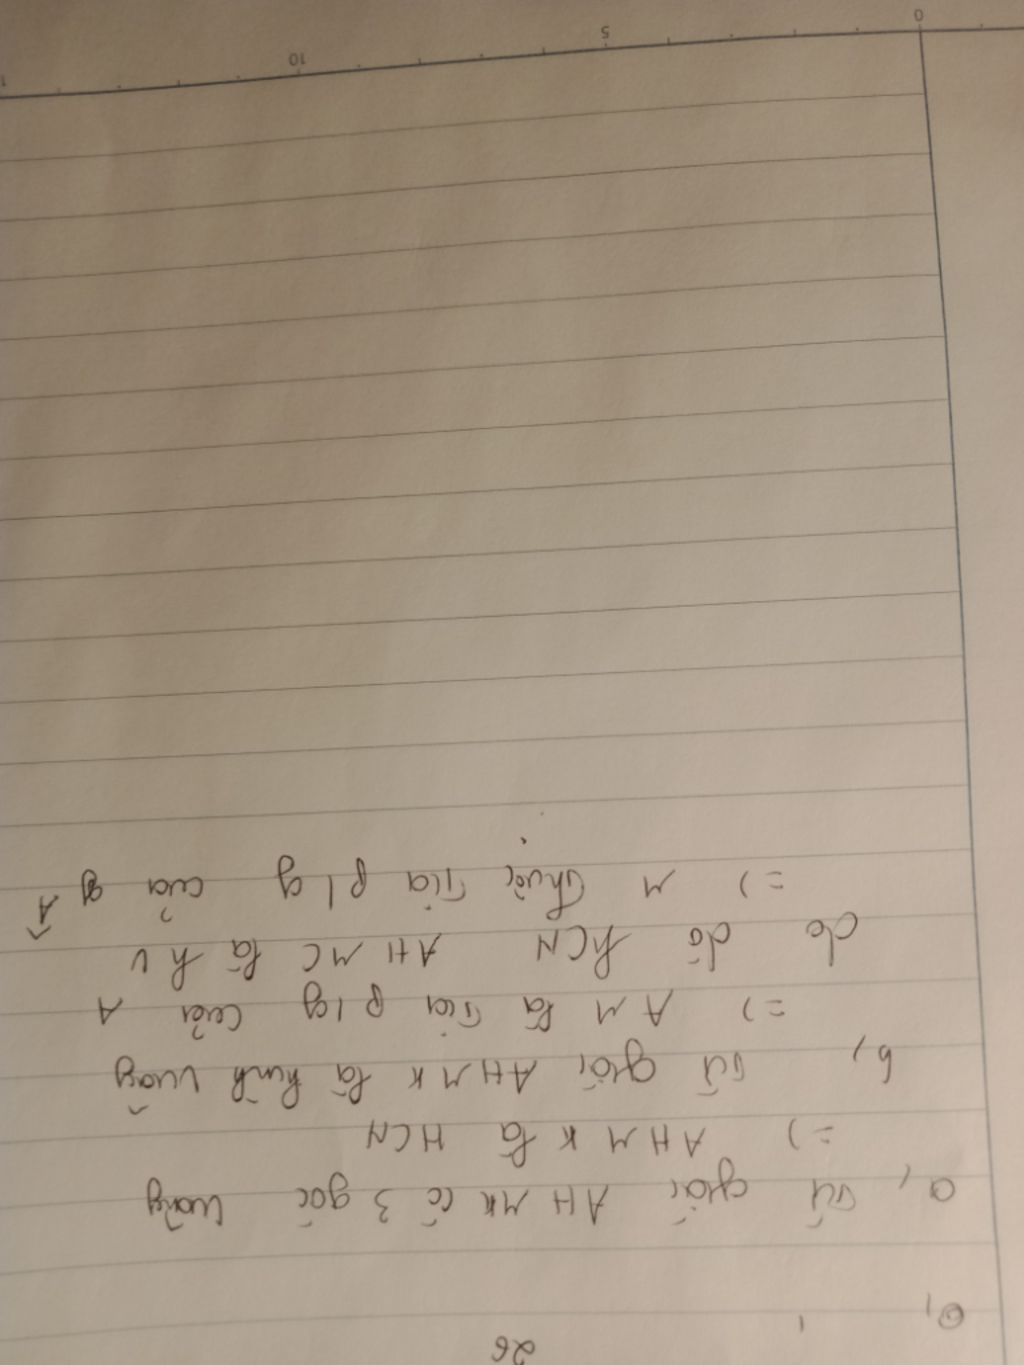 26
a, Tứ giác AHMK có 3 góc vuông
=) AHMK là HCN
b, Tứ giác AHMK là hình vuông
=) AM là Tia p/g của A
do đó hCN AHMC là hv
=) M thuộc Tia p/g của g Â
0 5 10